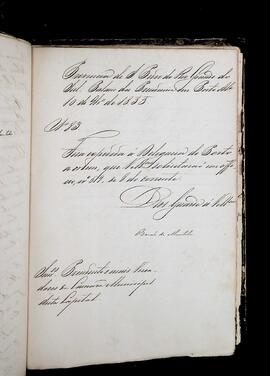 Provincia de S. Pedro do Rio Grande do
Sul. Palacio da Presidencia em Porto Alegre
10 de 9bro de 1855
Nº 83
Fica expedida á Delegacia de Porto
a ordem, que V.Mces. no seu offi-
cio, nº 317, de 8 do corrente.
Deos Guarde a V.Mces
Barão de Muritiba
Snres. Presidente e mais Verea-
dores da Camara Municipal
desta Capital.